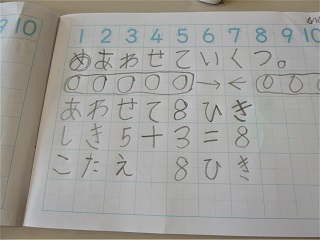 10 1 2 3 4 5 6 7 8 9 10
めあわせていくつ。
○○○○○→←○○○
あわせて8ひき
しき5+3=8
こたえ 8ひき